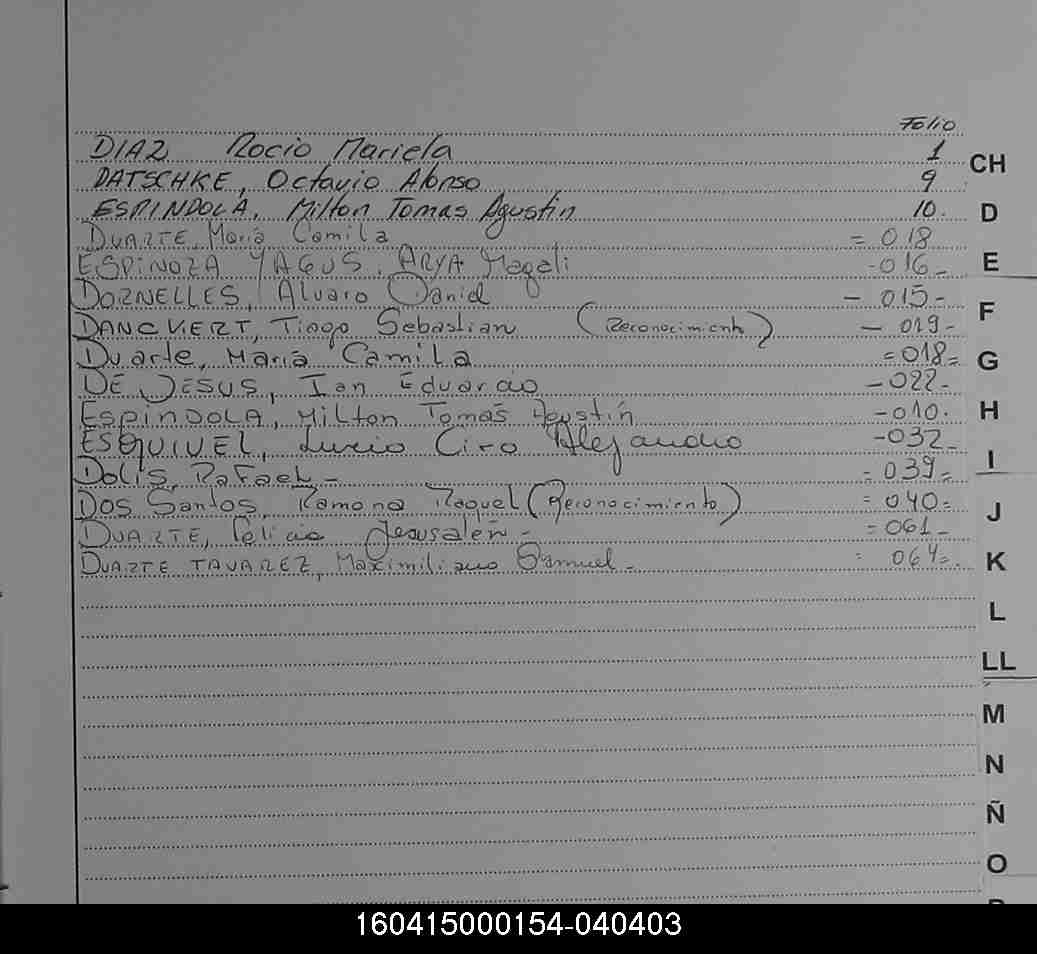 Folio
DIAZ Rocio Mariela 1
DATSCHKE, Octavio Alonso 9
ESPINDOLA, Milton Tomas Agustin 10.
DUARTE, María Camila = 018
ESPINOZA YAGUS, ARYA Magali -016-
DORNELLES, Alvaro Daniel - 015-
DANCKERT, Tiago Sebastian (Reconocimiento) - 019-
Duarte, María Camila =018=
DE JESUS, Ian Eduardo -022-
ESPINDOLA, Milton Tomás Agustín -010.
ESQUIVEL, Lucio Ciro Alejandro -032-
Dolis, Rafael - = 039=
Dos Santos, Ramona Raquel (Reconocimiento) =040=
DUARTE, Jerusalén - =061-
DUARTE TAVAREZ, Maximiliano Samuel - = 064=.
CH
D
E
F
G
H
I
J
K
L
LL
M
N
Ñ
O
160415000154-040403